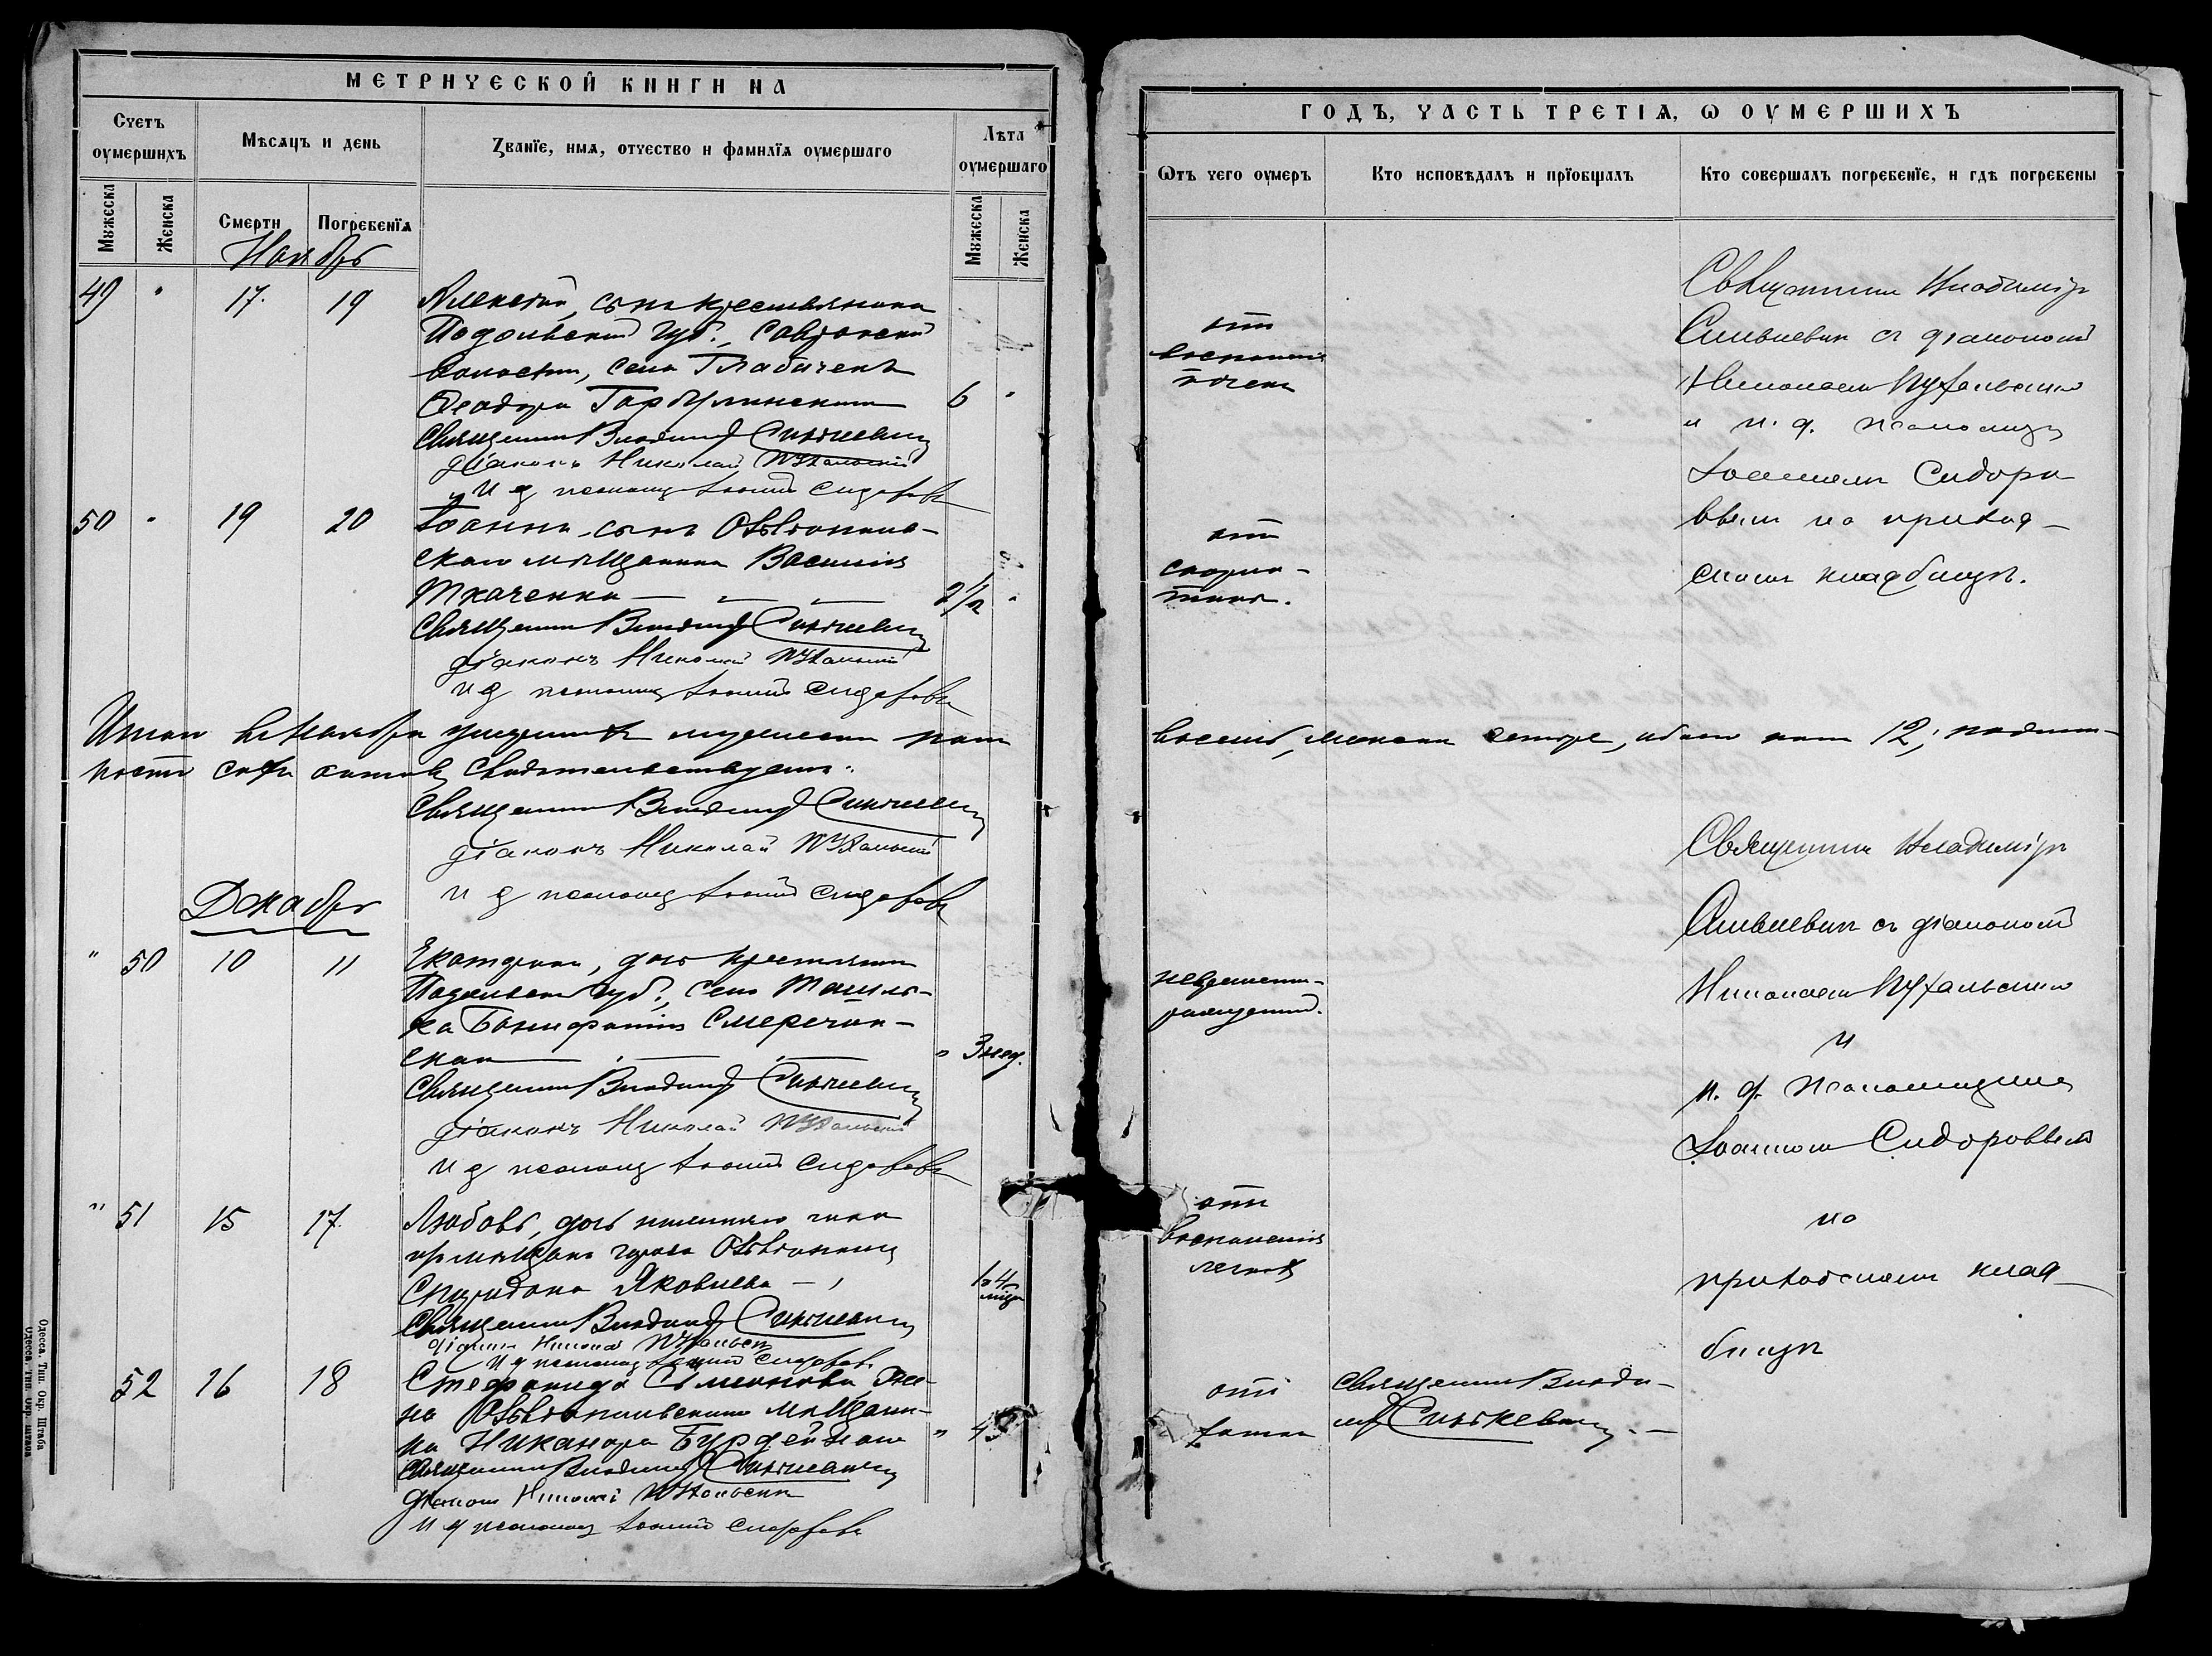 МЕТРИЧЕСКОЙ КНИГИ НА
Счетъ оумершихъ
Мѣсяцъ и день
Званїе, имя, отчество и фамилїя оумершаго
Лѣта оумершаго
Мужеска
Женска
Смерти
Погребенїя
Мужеска
Женска
Ноябрь
49 " 17. 19 Алексѣй, сынъ крестьянина
Подольской губ., Савранской
волости, села
Ѳеодора Гарбулинскаго 6 "
Священникъ Владимиръ Синькевичъ
діаконъ Николай Пухальскій
и д псаломщ Іоаннъ Сидоровъ
50 " 19 20 Іоаннъ, сынъ Овидіополь-
скаго мѣщанина Василія
Ткаченко 2 1/2 "
Священникъ Владимиръ Синькевичъ
діаконъ Николай Пухальскій
и д псаломщ Іоаннъ Сидоровъ
Итого въ Ноябрѣ умершихъ мужеска пола
ность сихъ актовъ свидѣтельствуемъ:
Священникъ Владимиръ Синькевичъ
діаконъ Николай Пухальскій
и д псаломщ Іоаннъ Сидоровъ
Декабрь
" 50 10 11 Екатерина, дочь крестьянина
Подольской губ., села
Бонифатія Смеречин-
скаго " 3 нед.
Священникъ Владимиръ Синькевичъ
діаконъ Николай Пухальскій
и д псаломщ Іоаннъ Сидоровъ
" 51 15 17. Любовь, дочь
города Овидіополя
Спиридона Яковлева
Священникъ Владимиръ Синькевичъ
діаконъ Николай Пухальскій
и д псаломщ Іоаннъ Сидоровъ
52 16 18 Стефанида Симеонова, же-
на Овидіопольскаго мѣщани-
на Никанора "
Священникъ Владимиръ Синькевичъ
діаконъ Николай Пухальскій
и д псаломщ Іоаннъ Сидоровъ
Одесса. Тип. Окр. Штаба
ГОДЪ, ЧАСТЬ ТРЕТІЯ, Ѡ ОУМЕРШИХЪ
Ѿтъ чего оумеръ
Кто исповѣдалъ и прїобщалъ
Кто совершалъ погребенїе, и гдѣ погребены
отъ
воспаленія
почекъ
Священникъ Владиміръ
Синькевичъ съ діакономъ
Николаемъ Пухальскимъ
и и. д. псаломщ
Іоанномъ Сидоро-
вымъ на приход-
скомъ кладбищѣ.
отъ
скарла-
тины.
восемь, женска четыре, обоего пола 12;
Священникъ Владиміръ
Синькевичъ съ діакономъ
Николаемъ Пухальскимъ
и
и. д. псаломщика
Іоанномъ Сидоровымъ
на
приходскомъ клад-
бищѣ
отъ
воспаленія
легкихъ
отъ
Священникъ Влади-
міръ Синькевичъ.